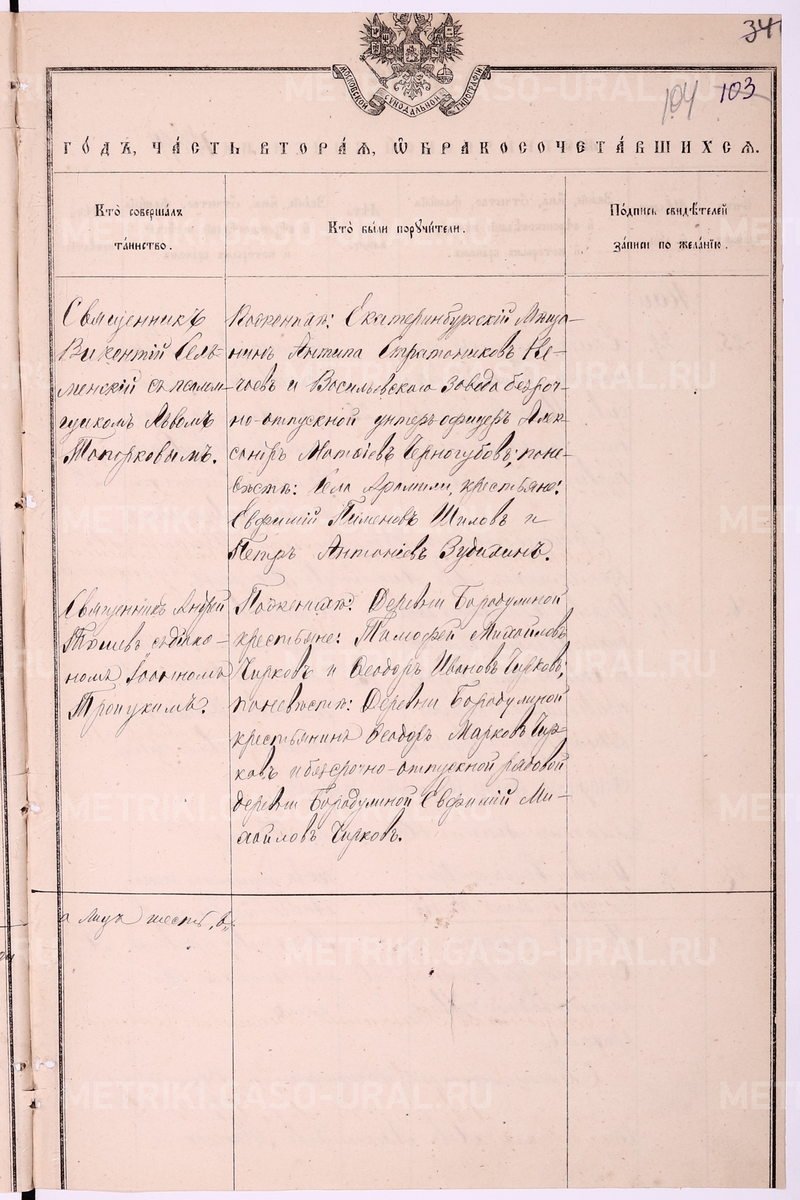 34
МОСКОВСКОЙ СѴНОДАЛЬНОЙ ТИПОГРАФІИ
104 103
ГО́ДЪ, ЧА́СТЬ ВТОРА́Ѧ, Ѽ БРАКОСОЧЕТА́ВШИХСѦ.
Кто̀ соверша́лъ
та́инство.
Кто̀ бы́ли порꙋчи́тели.
По́дпись свидѣ́телей
за́писи по жела́нїю.
Священникъ
Викентій Сель-
менскій съ псалом-
щикомъ Львомъ
Топорковымъ.
По женихѣ: Екатеринбургскій Мѣща-
нинъ Антипа Стратониковъ
и Васильевскаго завода безсроч-
но-отпускной унтеръ-офицеръ Алек-
сандръ Матвіевъ Черногубовъ; по не-
вѣстѣ: Села Арамили, крестьяне:
Евфимій Пименовъ Шиловъ и
Петръ Антоніевъ Зудихинъ.
Священникъ Андрей
съ діако-
номъ Іоанномъ
По женихѣ: Деревни Бородулиной
крестьяне: Тимофей Михайловъ
Чирковъ и Ѳеодоръ Ивановъ Чирковъ;
по невѣстѣ: Деревни Бородулиной
крестьянинъ Ѳеодоръ Марковъ Чир-
ковъ и безсрочно-отпускной рядовой
деревни Бородулиной Евфимій Ми-
хайловъ Чирковъ.
а лицъ шесть, 6„
METRIKI.GASO-URAL.RU